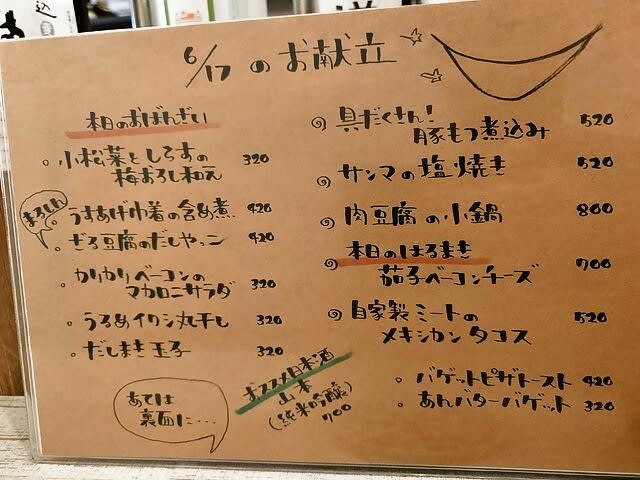 6/17 のお献立
本日のおばんざい
小松菜としらすの
梅おろし和え 320
まろしん
うすあげ巾着の含め煮 420
ざる豆腐のだしやっこ 420
カリカリベーコンの
マカロニサラダ 320
うるめイワシ丸干し 320
だしまき玉子 320
あては
裏面に…
オススメ日本酒
山本
(純米吟醸)
700
具だくさん!
豚もつ煮込み 520
サンマの塩焼き 520
肉豆腐の小鍋 800
本日のはるまき
茄子ベーコンチーズ 700
自家製ミートの
メキシカンタコス 520
バゲットピザトースト 420
あんバターバゲット 320